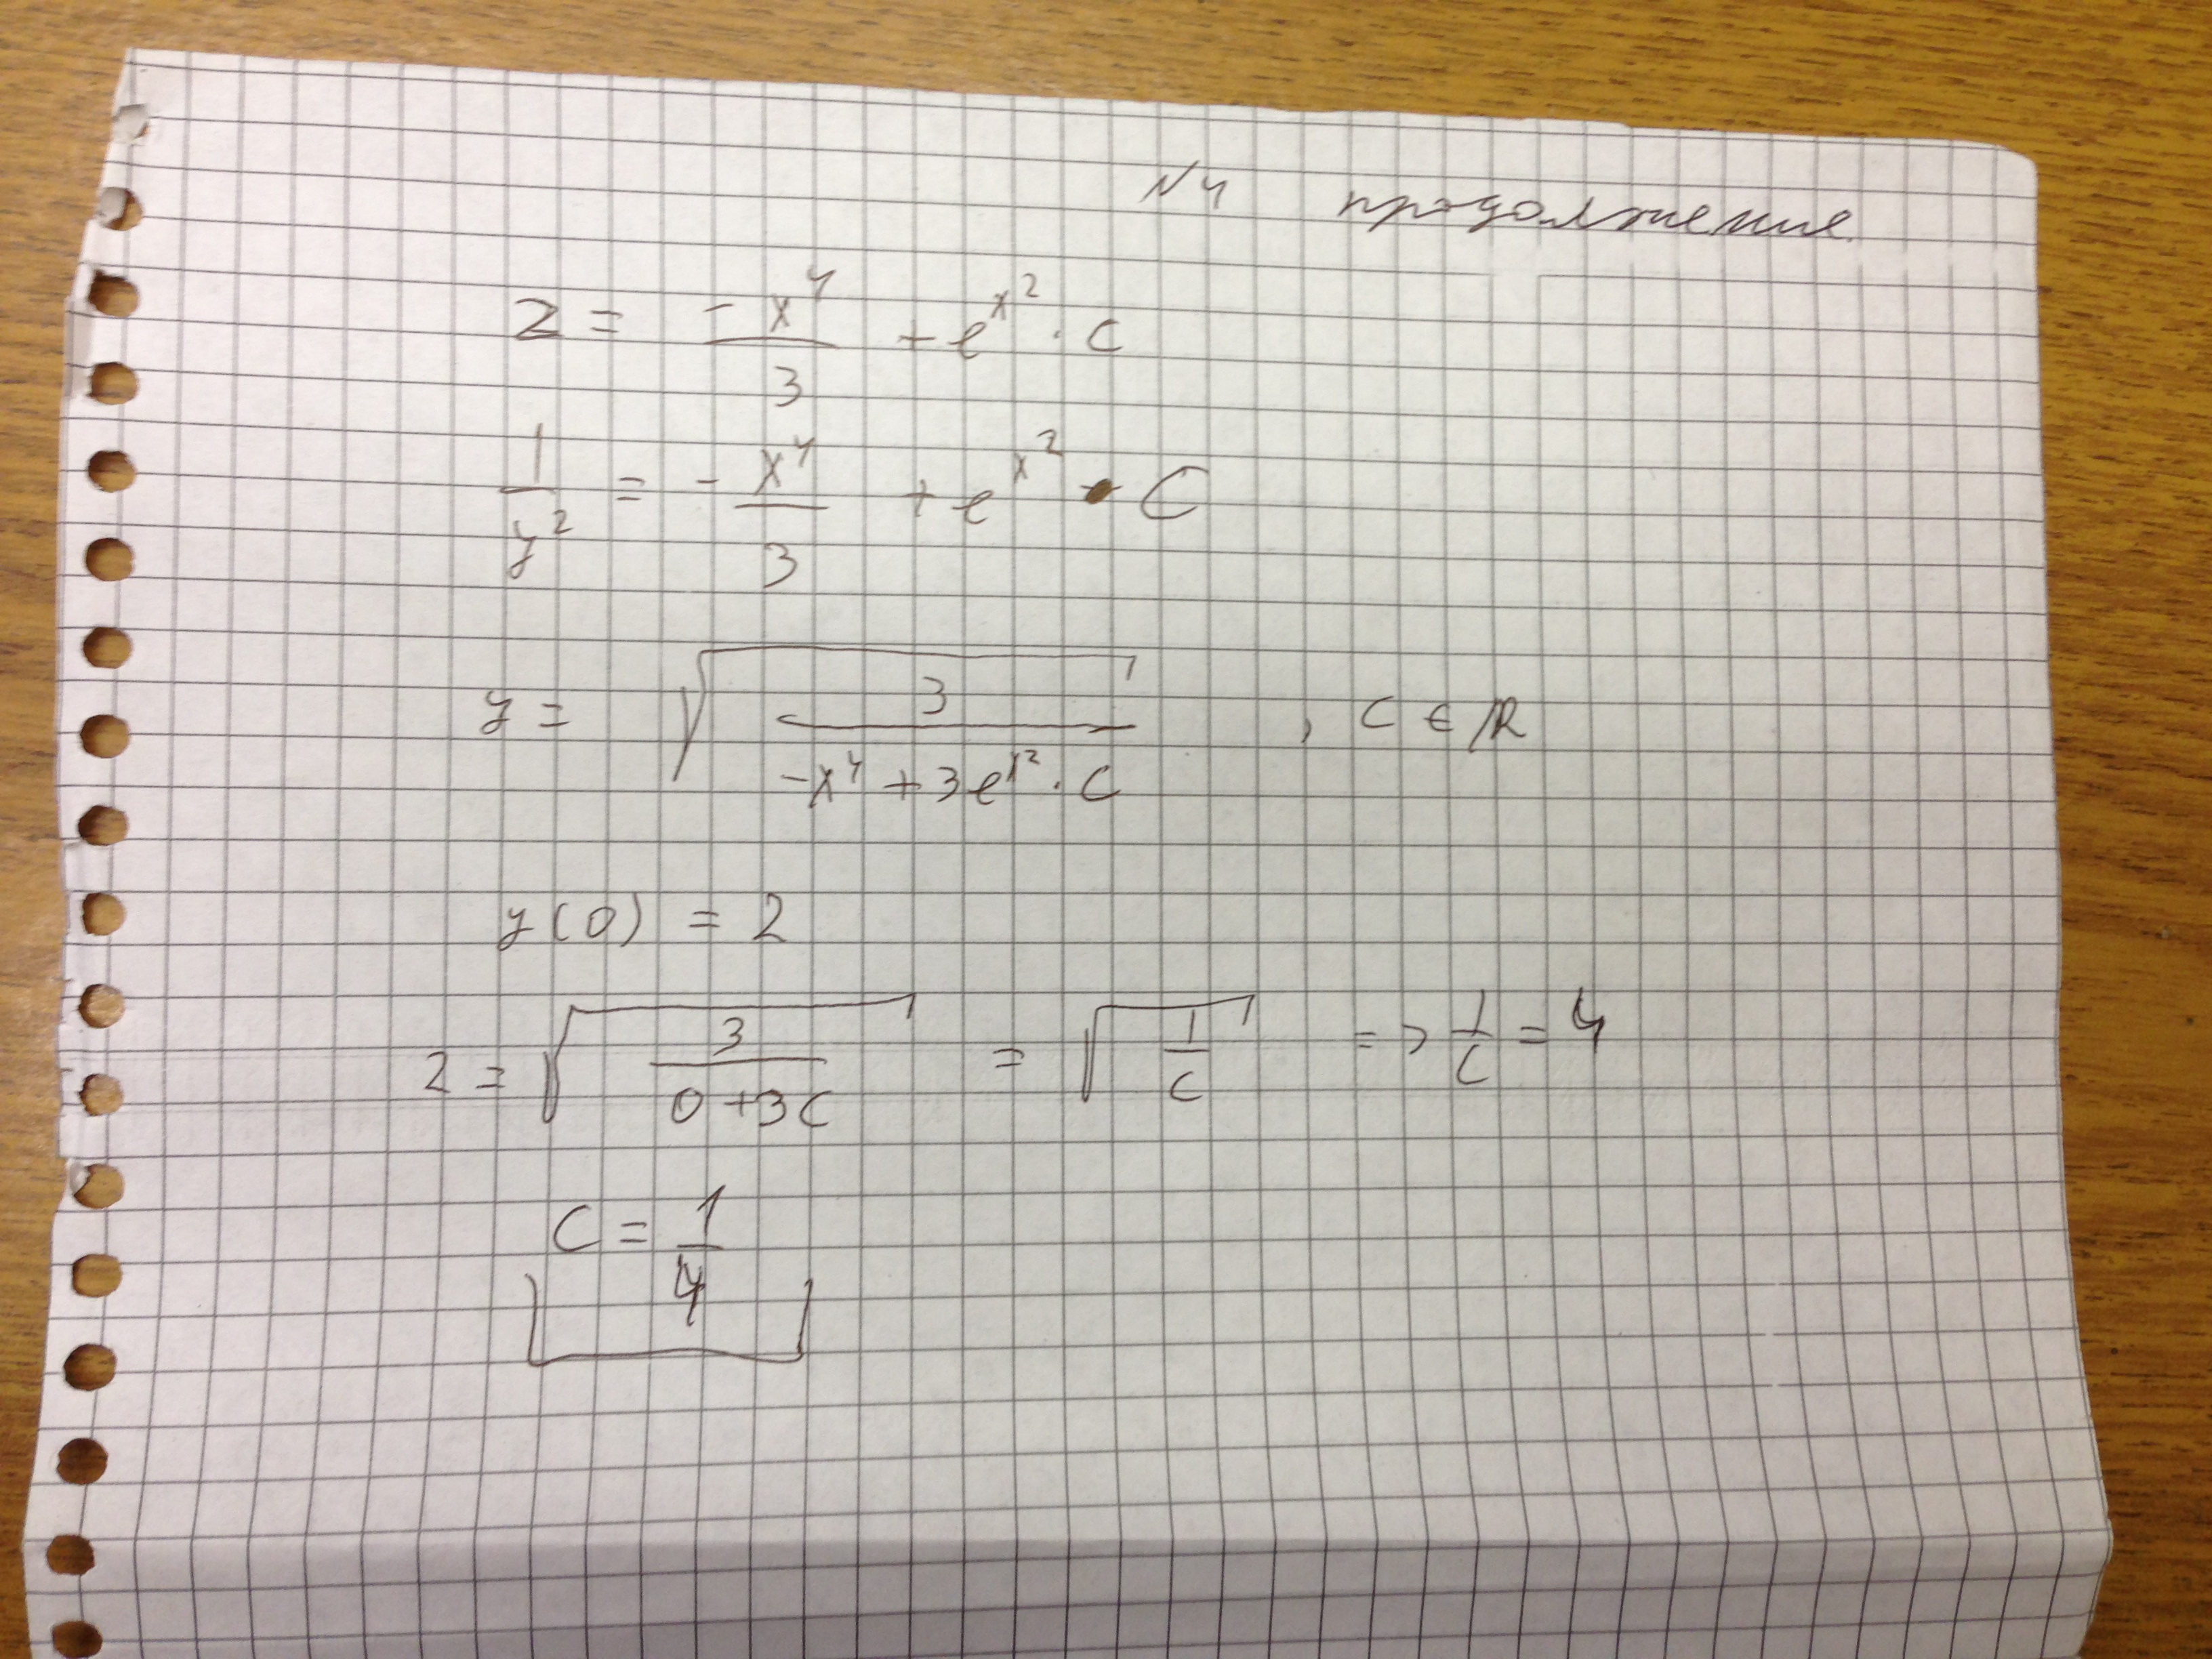 N4 продолжение
z = -x⁴/3 + e^x² · C
1/y² = -x⁴/3 + e^x² · C
y = √(3/(-x⁴ + 3e^x² · C)) , C ∈ ℝ
y(0) = 2
2 = √(3/(0+3C)) = √(1/C) => 1/C = 4
C = 1/4